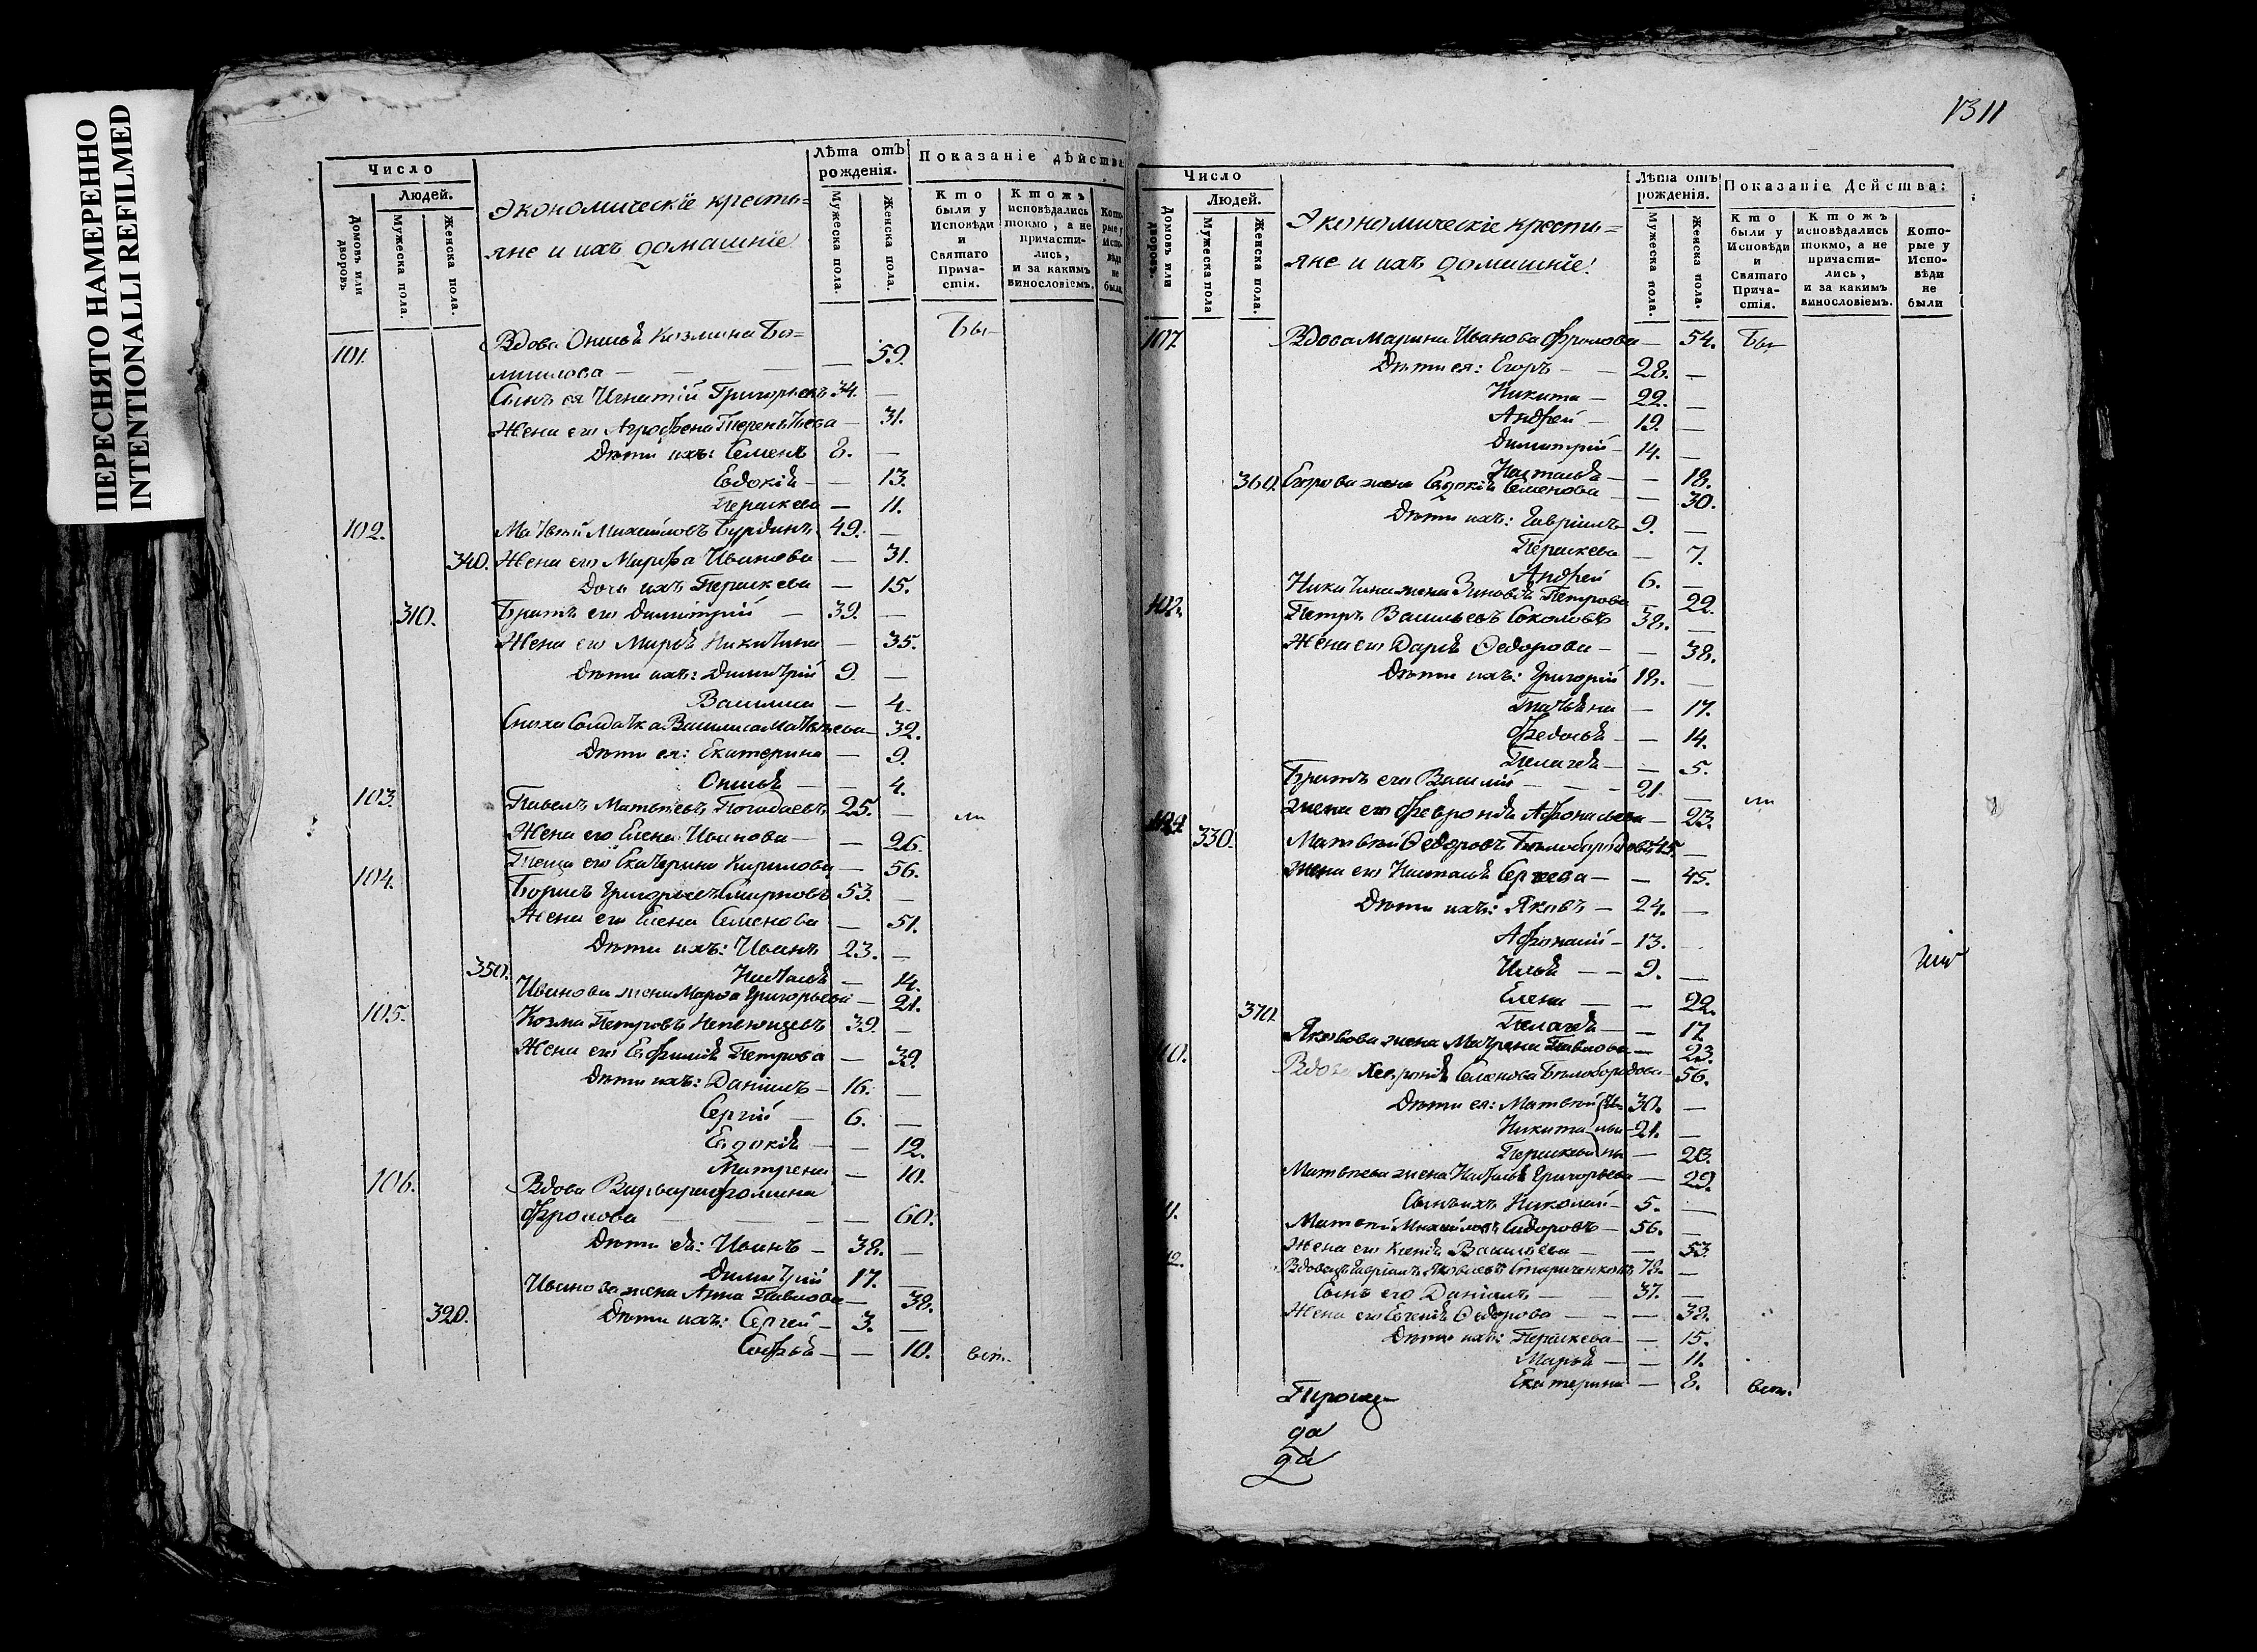 ПЕРЕСНЯТО НАМЕРЕННО
INTENTIONALLI REFILMED
Число
Людей.
Домовъ или дворовъ
Мужеска пола.
Женска пола.
Экономическіе крестья=
яне и ихъ домашніе
Лѣта отъ рожденія.
Мужеска пола.
Женска пола.
Показаніе дѣйства
Кто были у Исповѣди и Святаго Причастія.
Ктожъ исповѣдались токмо, а не причастились, и за какимъ винословіемъ.
Которые у Исповѣди не были
101. Вдова Оксинья Козмина Бо= Бы
милова — — 59.
Сынъ ея Игнатій Григорьевъ 34. —
Жена его Агрофена Терентьева — 31.
Дѣти ихъ: Семенъ 8. —
Евдокія — 13.
Пераскева — 11.
102. Матвѣй Михайловъ Бурдинъ 49. —
340. Жена его Марфа Иванова — 31.
Дочь ихъ Пераскева — 15.
310. Братъ его Димитрій — 39. —
Жена его Марья Никитина — 35.
Дѣти ихъ: Димитрій 9. —
Васильи — 4.
Сноха Солдатка Василиса Матвѣева — 32.
Дѣти ея: Екатерина — 9.
Оксинья — 4.
103. Павелъ Матвѣевъ Погадаевъ 25. — ли
Жена его Елена Иванова — 26.
Теща его Екатерина Кирилова — 56.
104. Борисъ Григорьевъ Смирновъ 53. —
Жена его Елена Семенова — 51.
Дѣти ихъ: Иванъ 23. —
350. Наталья — 14.
Иванова жена Марфа Григорьева — 21.
105. Козма Петровъ 39. —
Жена его Евфимія Петрова — 39.
Дѣти ихъ: Даніилъ — 16. —
Сергій — 6. —
Евдокія — 12.
Матрена — 10.
106. Вдова Варвара Фомина
Фролова — — 60.
Дѣти ея: Иванъ — 38. —
Димитрій 17. —
Иванова жена Анна Павлова — 38.
320. Дѣти ихъ: Сергей — 3. —
Софья — — 10. вст.
1311
Число
Людей.
Домовъ или дворовъ.
Мужеска пола
Женска пола.
Экономическіе крестья=
яне и ихъ домашніе.
Лѣта отъ рожденія.
Мужеска пола.
Женска пола.
Показаніе Действа:
Кто были у Исповѣди и Святаго Причастія.
Ктожъ исповѣдались токмо, а не причастились, и за какимъ винословіемъ.
Которые у Исповѣди не были
107. Вдова Марина Иванова Фролова — 54. Бы
Дѣти ея: Егоръ — 28. —
Никита — 22. —
Андрей — 19. —
Димитрій — 14. —
Наталья — — 18.
360. Егорова жена Евдокія Семенова — — 30.
Дѣти ихъ: Гавріилъ 9. —
Пераскева — 7.
Андрей 6. —
Никитина жена Зиновья Петрова — 22.
Петръ Васильевъ Соколовъ 38. —
Жена его Дарья Ѳедорова — — 38.
Дѣти ихъ: Григорій 18. —
Татьяна — 17.
Федосья — — 14.
Пелагея — — 5.
Братъ его Василій — 21. — ли
жена его Февронья Афонасьева — 23.
330. Матвѣй Ѳедоровъ Бѣлобородовъ 45. —
Жена его Наталья Сергеева — — 45.
Дѣти ихъ: Яковъ — 24. —
Афонасій — 13. —
Илья — — 9. —
Елена — — 22.
370. Пелагея — — 17.
Яковова жена Матрена Павлова — 23.
Вдова Хевронья Семенова Бѣлобородова — 56.
Дѣти ея: Матвѣй 30. —
Никита 21. —
Пераскева — 20.
Матвѣева жена Наталья Григорьева — 29.
Сынъ ихъ Николай — 5. —
Матвѣй Михайловъ Сидоровъ — 56. —
Жена его Ксенія Васильева — — 53.
Вдовецъ Гавріилъ Яковлевъ Стариченковъ 78. —
Сынъ его Даніилъ — 37. —
Жена его Евгенія Ѳедорова — — 38.
Дѣти ихъ: Пераскева — — 15.
Марья — — 11.
Екатерина — 8. вст.
да
да